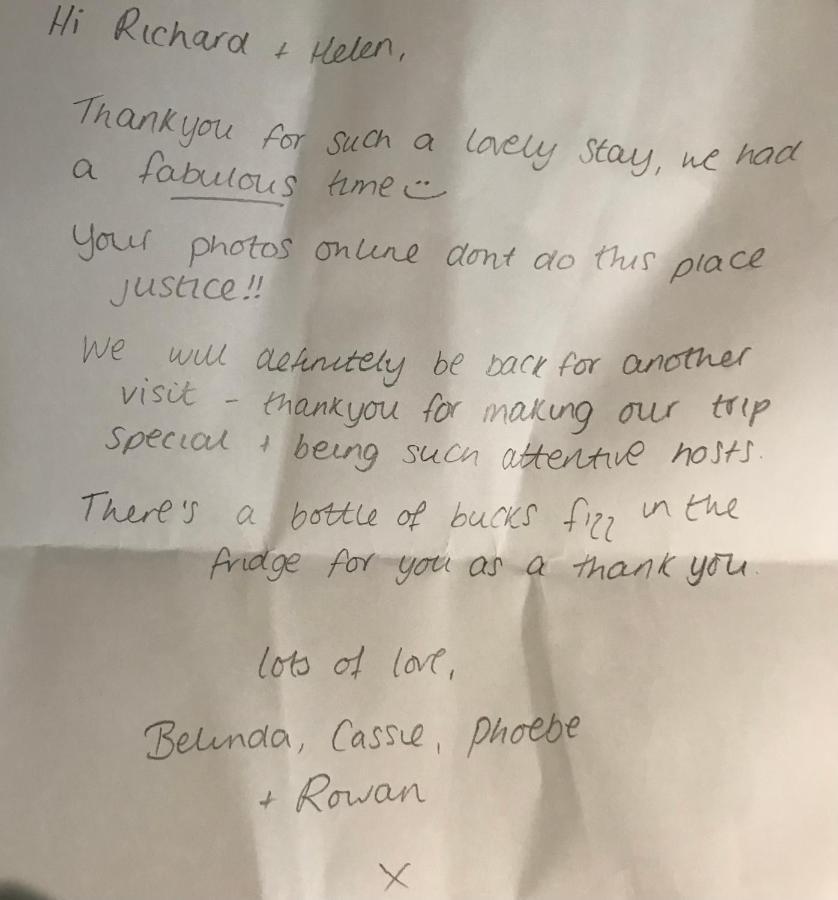 Hi Richard + Helen,
Thankyou for such a lovely stay, we had
a fabulous time :)
Your photos online dont do this place
justice!!
We will definitely be back for another
visit - thankyou for making our trip
special + being such attentive hosts.
There's a bottle of bucks fizz in the
fridge for you as a thank you.
lots of love,
Belinda, Cassie, Phoebe
+ Rowan
X